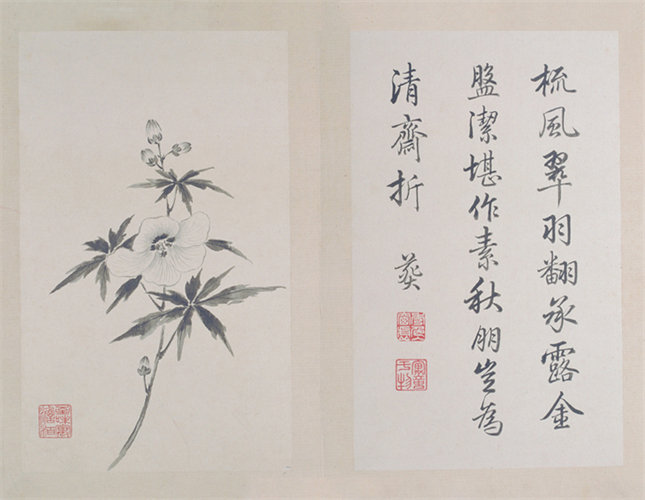 梳風翠羽翻承露金
盤潔堪作素秋朋豈為
清齋折 葵